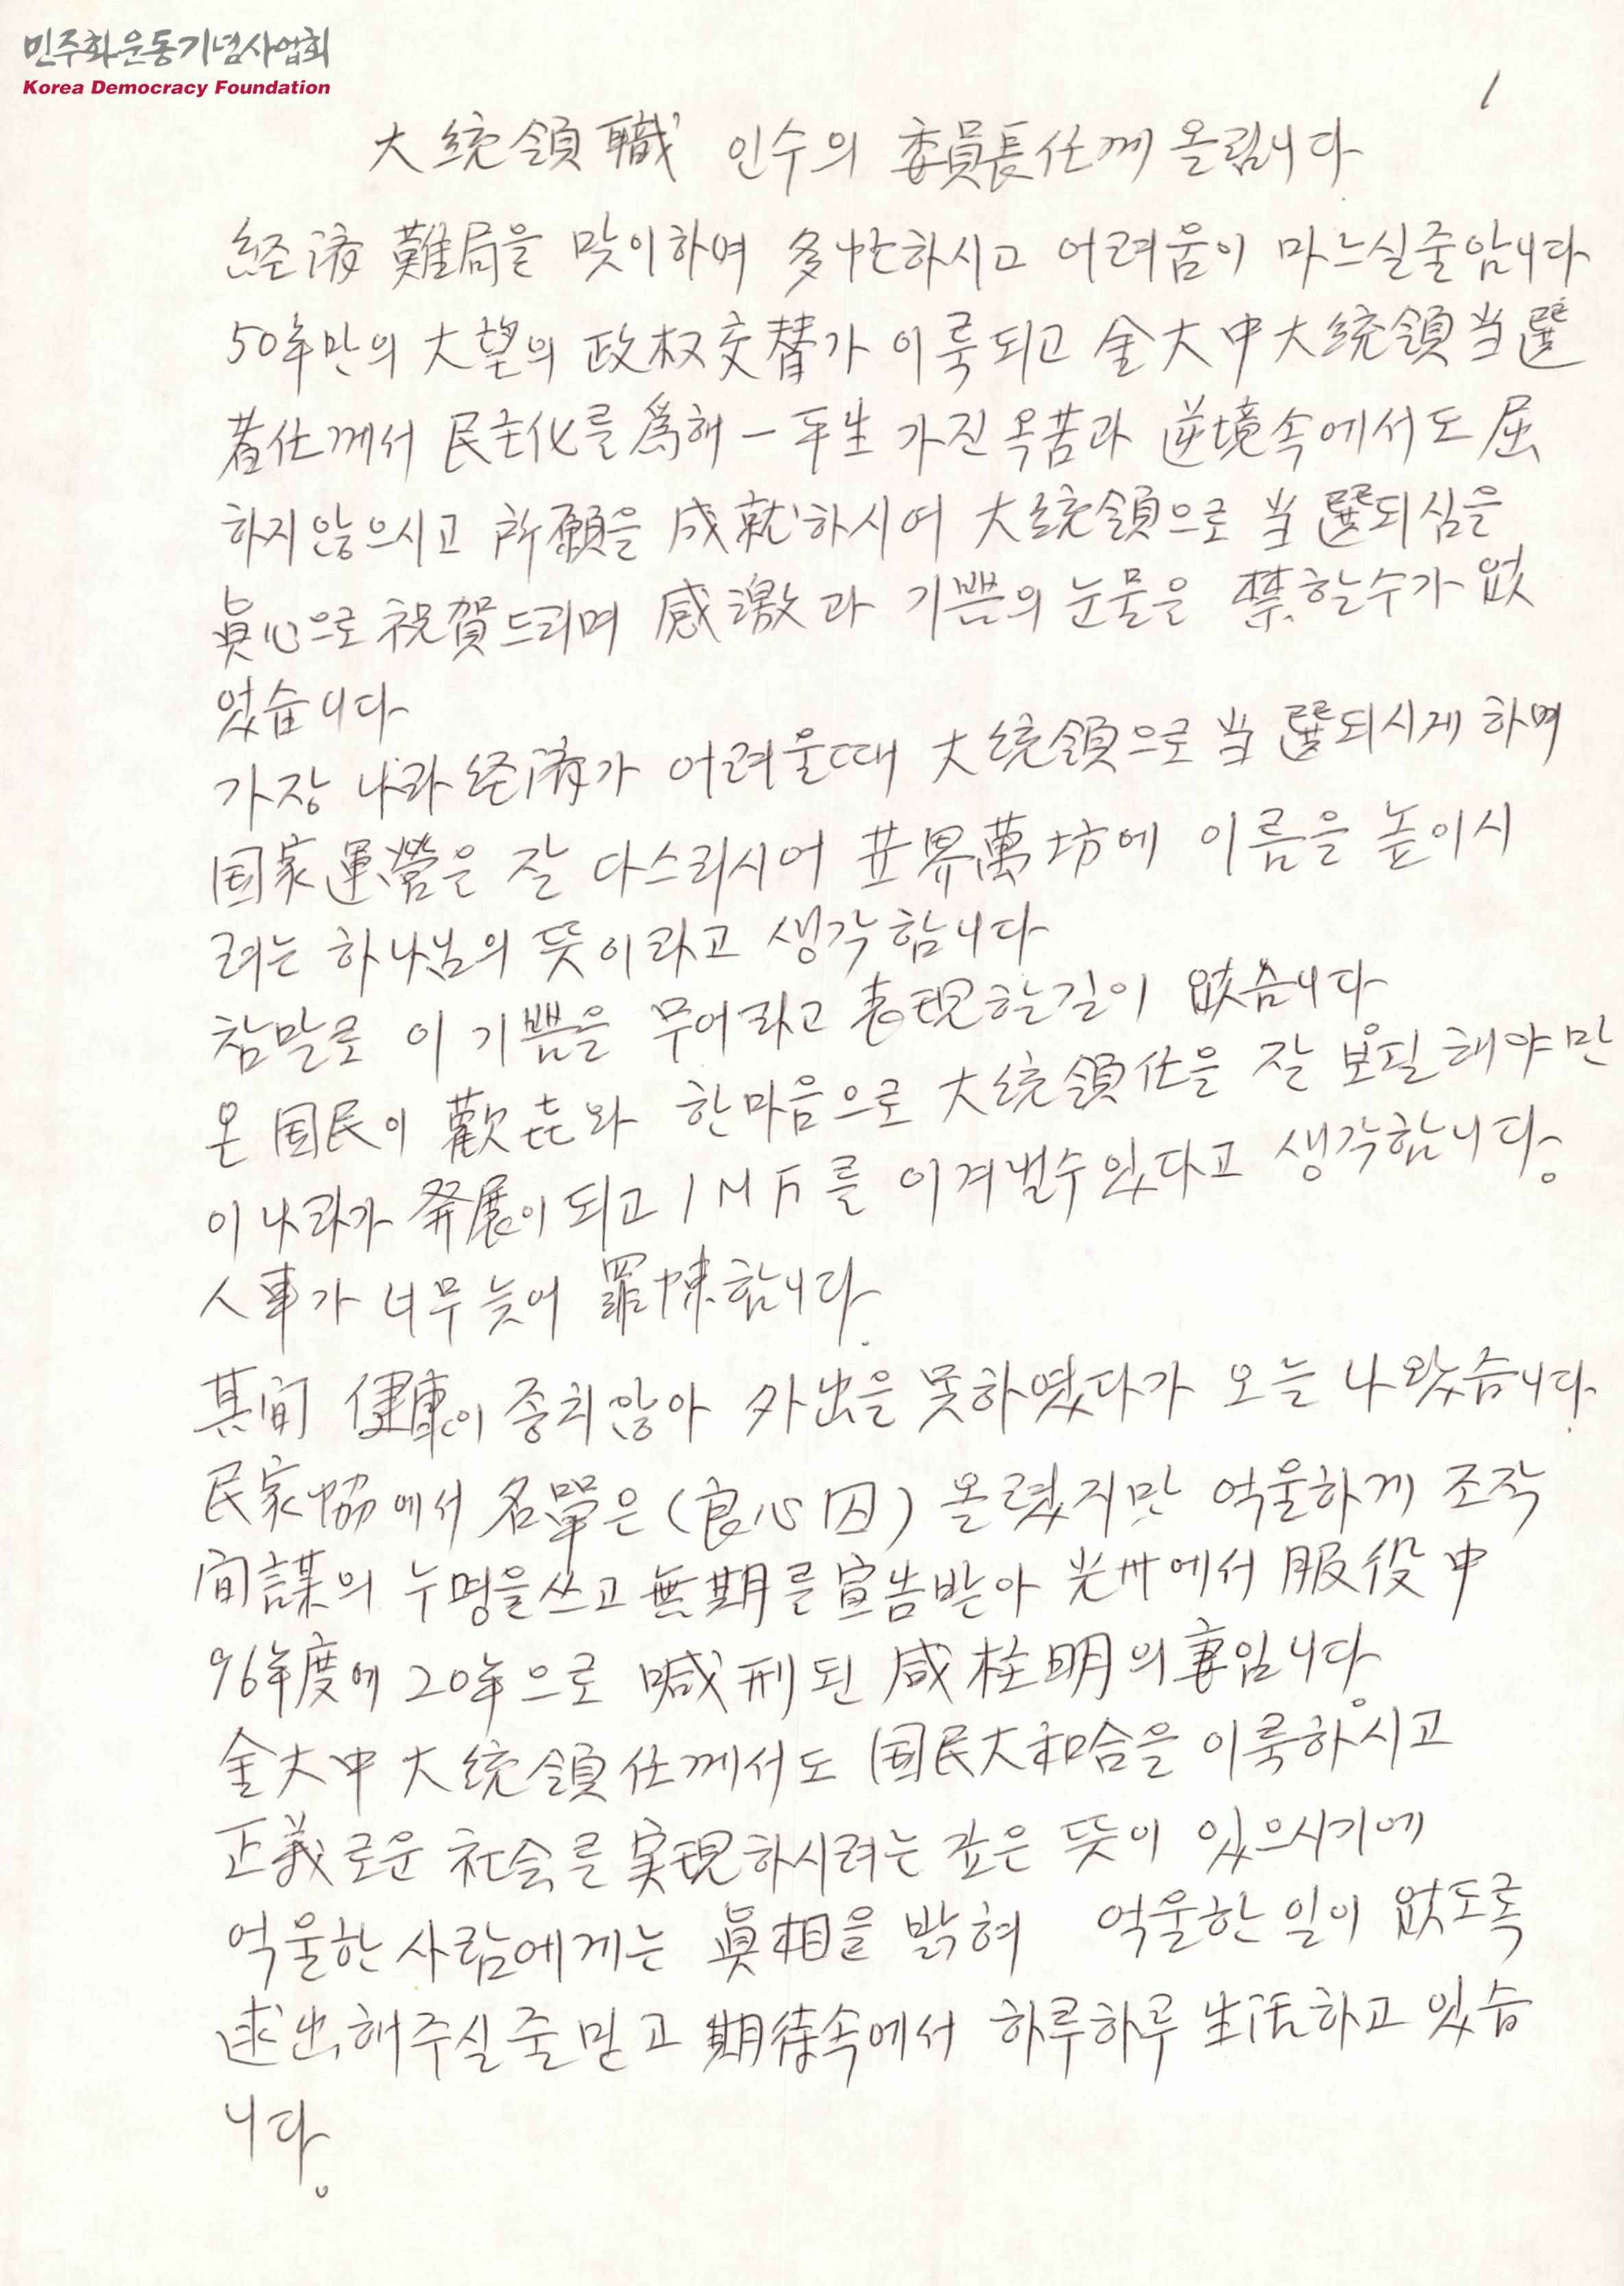 민주화운동기념사업회
Korea Democracy Foundation
1
大統領職 인수의 委員長任께 올립니다
経済 難局을 맞이하여 多忙하시고 어려움이 마느실줄암니다
50年만의 大望의 政权交替가 이룩되고 金大中大統領当選
者任께서 民主化를 爲해 一平生 가진 옥苦과 逆境속에서도 屈
하지않으시고 所願을 成就하시여 大統領으로 当選되심을
眞心으로 祝賀드리며 感激과 기쁨의 눈물을 禁할수가 없
었습니다
가장 나라経済가 어려울때 大統領으로 当選되시게 하며
国家運營을 잘 다스리시어 世界萬坊에 이름을 높이시
려는 하나님의 뜻이라고 생각합니다
참말로 이 기쁨을 무어라고 表現할길이 없습니다
온 国民이 歡喜와 한마음으로 大統領任을 잘 보필해야만
이나라가 発展이 되고 IMF를 이겨낼수있다고 생각합니다。
人事가 너무늦어 罪悚합니다
其间 健康이 좋치않아 外出을 못하였다가 오늘 나왔습니다
民家協에서 名單은 (良心囚) 올렸지만 억울하게 조작
间諜의 누명을쓰고 無期를 宣告받아 光州에서 服役中
96年度에 20年으로 喊刑된 咸柱明의 妻입니다
金大中大統領任께서도 国民大和合을 이룩하시고
正義로운 社会를 実現하시려는 깊은 뜻이 있으시기에
억울한 사람에게는 眞相을 밝혀 억울한 일이 없도록
逑出해주실줄믿고 期待속에서 하루하루 生活하고 있습
니다。